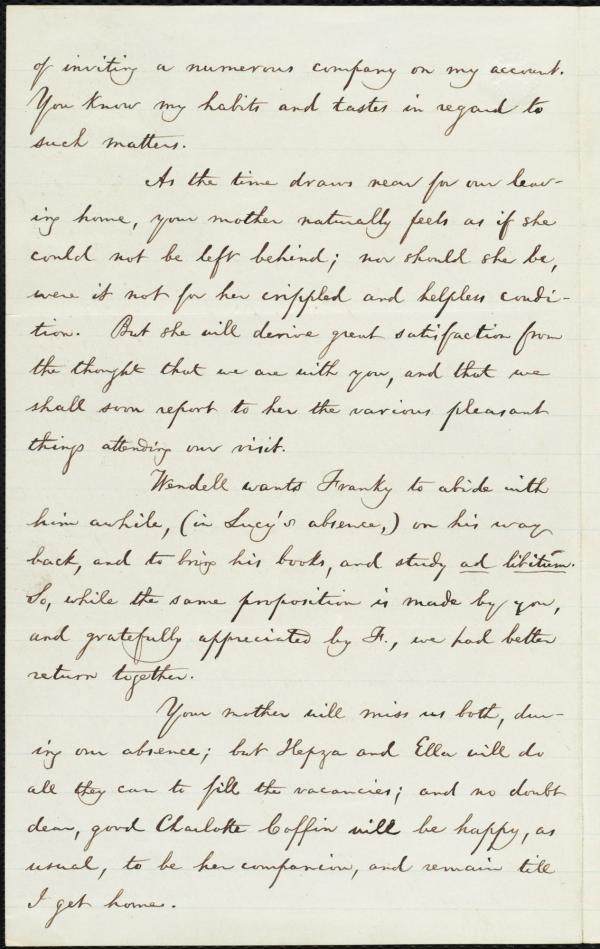 of inviting a numerous company on my account.
You know my habits and tastes in regard to
such matters.
As the time draws near for our leav-
ing home, your mother naturally feels as if she
could not be left behind; nor should she be,
were it not for her crippled and helpless condi-
tion. But she will derive great satisfaction from
the thought that we are with you, and that we
shall soon report to her the various pleasant
things attending our visit.
Wendell wants Franky to abide with
him awhile, (in Lucy's absence,) on his way
back, and to bring his books, and study ad libitum.
So, while the same proposition is made by you,
and gratefully appreciated by F., we had better
return together.
Your mother will miss us both, dur-
ing our absence; but Hepza and Ella will do
all they can to fill the vacancies; and no doubt
dear, good Charlotte Coffin will be happy, as
usual, to be her companion, and remain till
I get home.